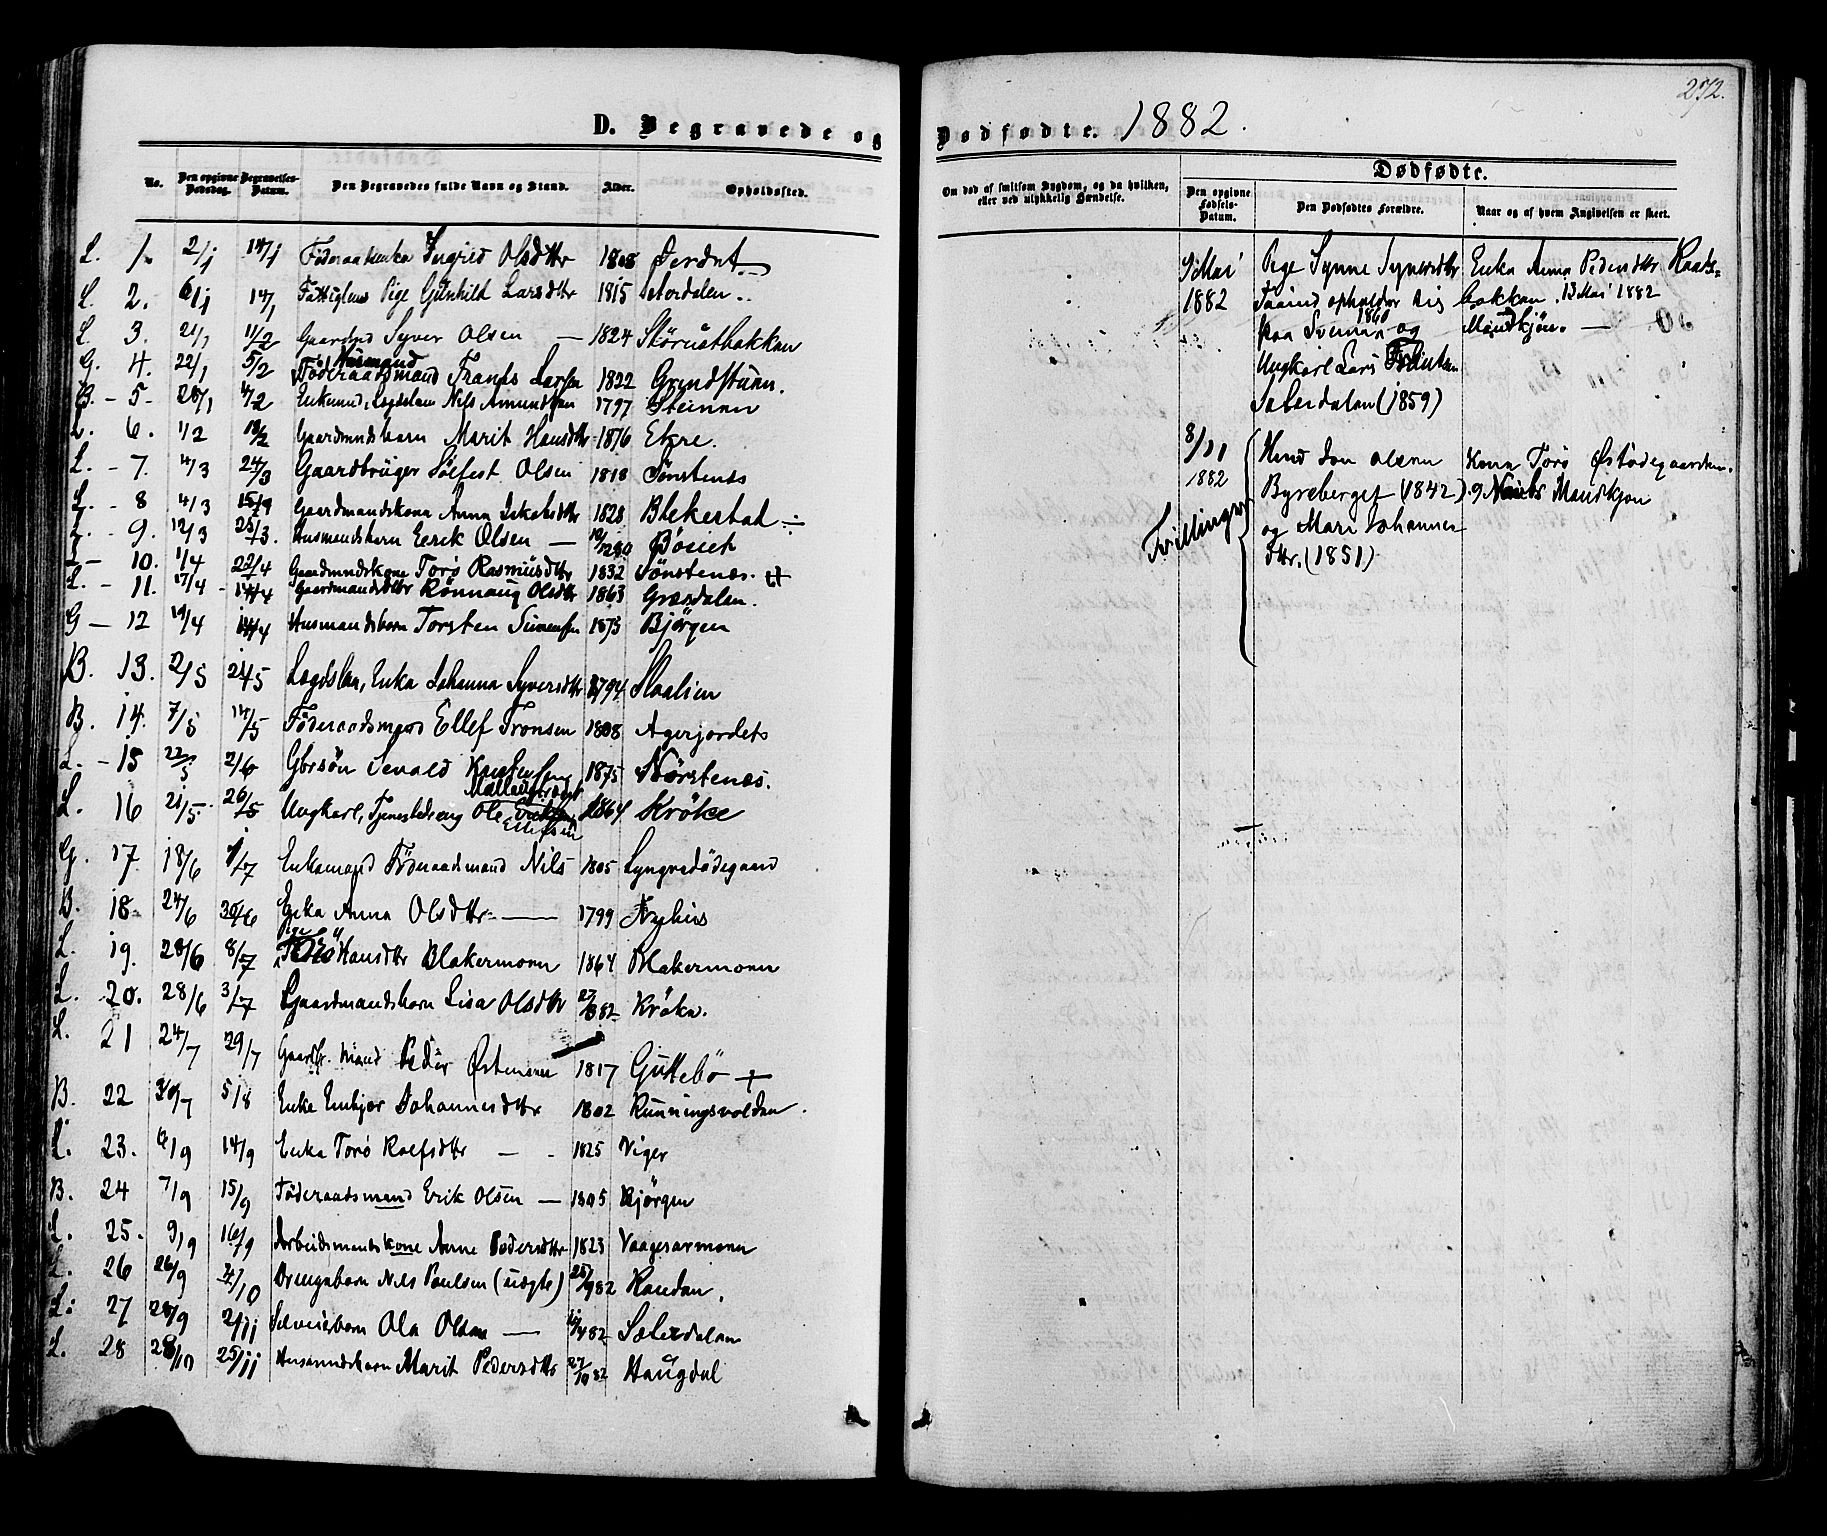 272.
D. Begravede og Dødfødte. 1882.
No. Den opgivne Dødsdag. Begravelses-Datum. Den Begravedes fulde Navn og Stand. Alder. Opholdssted.
L. 1. 2/1 14/1 Föderaadsenka Ingrid Olsdttr 1808
L. 2. 6/1 14/1 Fattiglem Pige Gunhild Larsdttr 1815 Nordalen
L. 3. 21/1 11/2 Syver Olsen — 1824 Störustbakken
G. 4. 22/1 5/2 Husmand Föderaadsmand Frants Larsen 1822 Grindstuen.
B. - 5 - 28/1 4/2 Enkemd, Lægdslem Nils Amundsen 1797 Steinen
L. 6. 1/2 18/2 Gaardmdsbarn Marit Hansdttr 1876 Ekre.
L. - 7. 4/3 24/3 Gaardbrüger Sölfest Olsen 1818 Sönstenes
L. - 8 4/3 15/3 Gaardmandskona Anna Jakobsdttr 1828 Blekestad ÷
L. - 9. 12/3 25/3. Husmandsbarn Eerik Olsen —
L - 10. 1/4 22/4 Gaardmandskone Torö Rasmüsdttr 1832 Sönstenes.
L. - 11. 17/4 Gaardmandsdttr Rönnaug Olsdttr 1863 Græsdalen.
G — 12 19/4 Husmandsbarn Torsten Simensen 1873 Björgen
B. 13. 2/5 Lægdslem, Enka Johanna Syversdttr 1794
B. 14. 7/5 14/5 Föderaadsmand Ellef Tronsen 1808 Agerjordets
L. - 15 22/5 2/6 Gbrsön Sevald 1875 Nörstenæs.
L. 16 21/5 26/5 Ungkarl, Tjenestedreng Ole Ellefsen 1864 Kröke
G. 17. 18/6 1/7 Enkemand Föderaadsmand Nils 1805 Lyngvedödegaard
B. 18. 24/6 30/6 Enka Anna Olsdttr — 1799 Nyhus
L. 19. 28/6 8/7 Pige Torö Hansdttr Blakermoen 1864 Blakermoen
L. 20. 28/6 3/7 Gaardmandsbarn Lisa Olsdttr 27/3 82 Kröka.
L. 21 24/7 29/7 Gaardbr. mand Peder Östensen 1817 Guttebö +
B. 22 30/7 5/8 Enke Embjör Johannesdttr 1802 Runningsvolden.
L. 23. 14/9 Enka Torö Rolfsdttr — 1825 Viger
B. 24 7/9 15/9 Föderaadsmand Erik Olsen — 1805 Björgen
L. 25. 9/9 16/9 Arbeidsmandskone Anne Pedersdttr 1823 Vaagesarmoen
L. 26 26/9 4/10 Drengebarn Nils Poulsen (uægte) 82 Randen.
L. 27 28/9 2/11 Selveierbarn Ola Olsen — 82 Sæterdalen
L. 28 28/10 25/11 Husmandsbarn Marit Pedersdttr 27/10 82 Haugdal
Om død af smitsom Sygdom, og da hvilken, eller ved ulykkelig Hændelse.
Dødfødte.
Den opgivne Fødsels-Datum. Den Dødfødtes Forældre. Naar og af hvem Angivelsen er skeet.
9 Mai 1882
Pige Synne Syversdttr
opholder sig
paa Svenen 1860 og
Ungkarl Lars
Sæterdalen (1859)
Enka Anna Pedersdttr
bakken. 13 Mai 1882
Mandkjön. —
Tvillinger
8/11 1882
Hmd Jon Olsen
Byreberget (1842)
og Mari Johannes
dttr. (1851)
Kona Torö Östödegaarden.
Mandkjøn